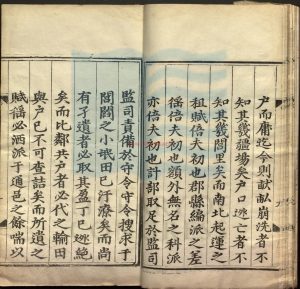 户而庸迄今則獻畝崩洗者不
知其幾疆場矣戶口逃亡者不
知其幾閭里矣而南北起運之
租賦倍夫初也郡縣編派之差
徭倍夫初也額外無名之科派
亦倍夫初也計部取足於監司
監司責備於守令守令搜求于
閭閻之小氓田已汙潦矣而尚
有孑遺者必取其盈丁已逃絶
矣而比鄰共户者必代之輸田
與户已不可查詰矣而所遺之
賦徭必洒派于通邑之餘喘以